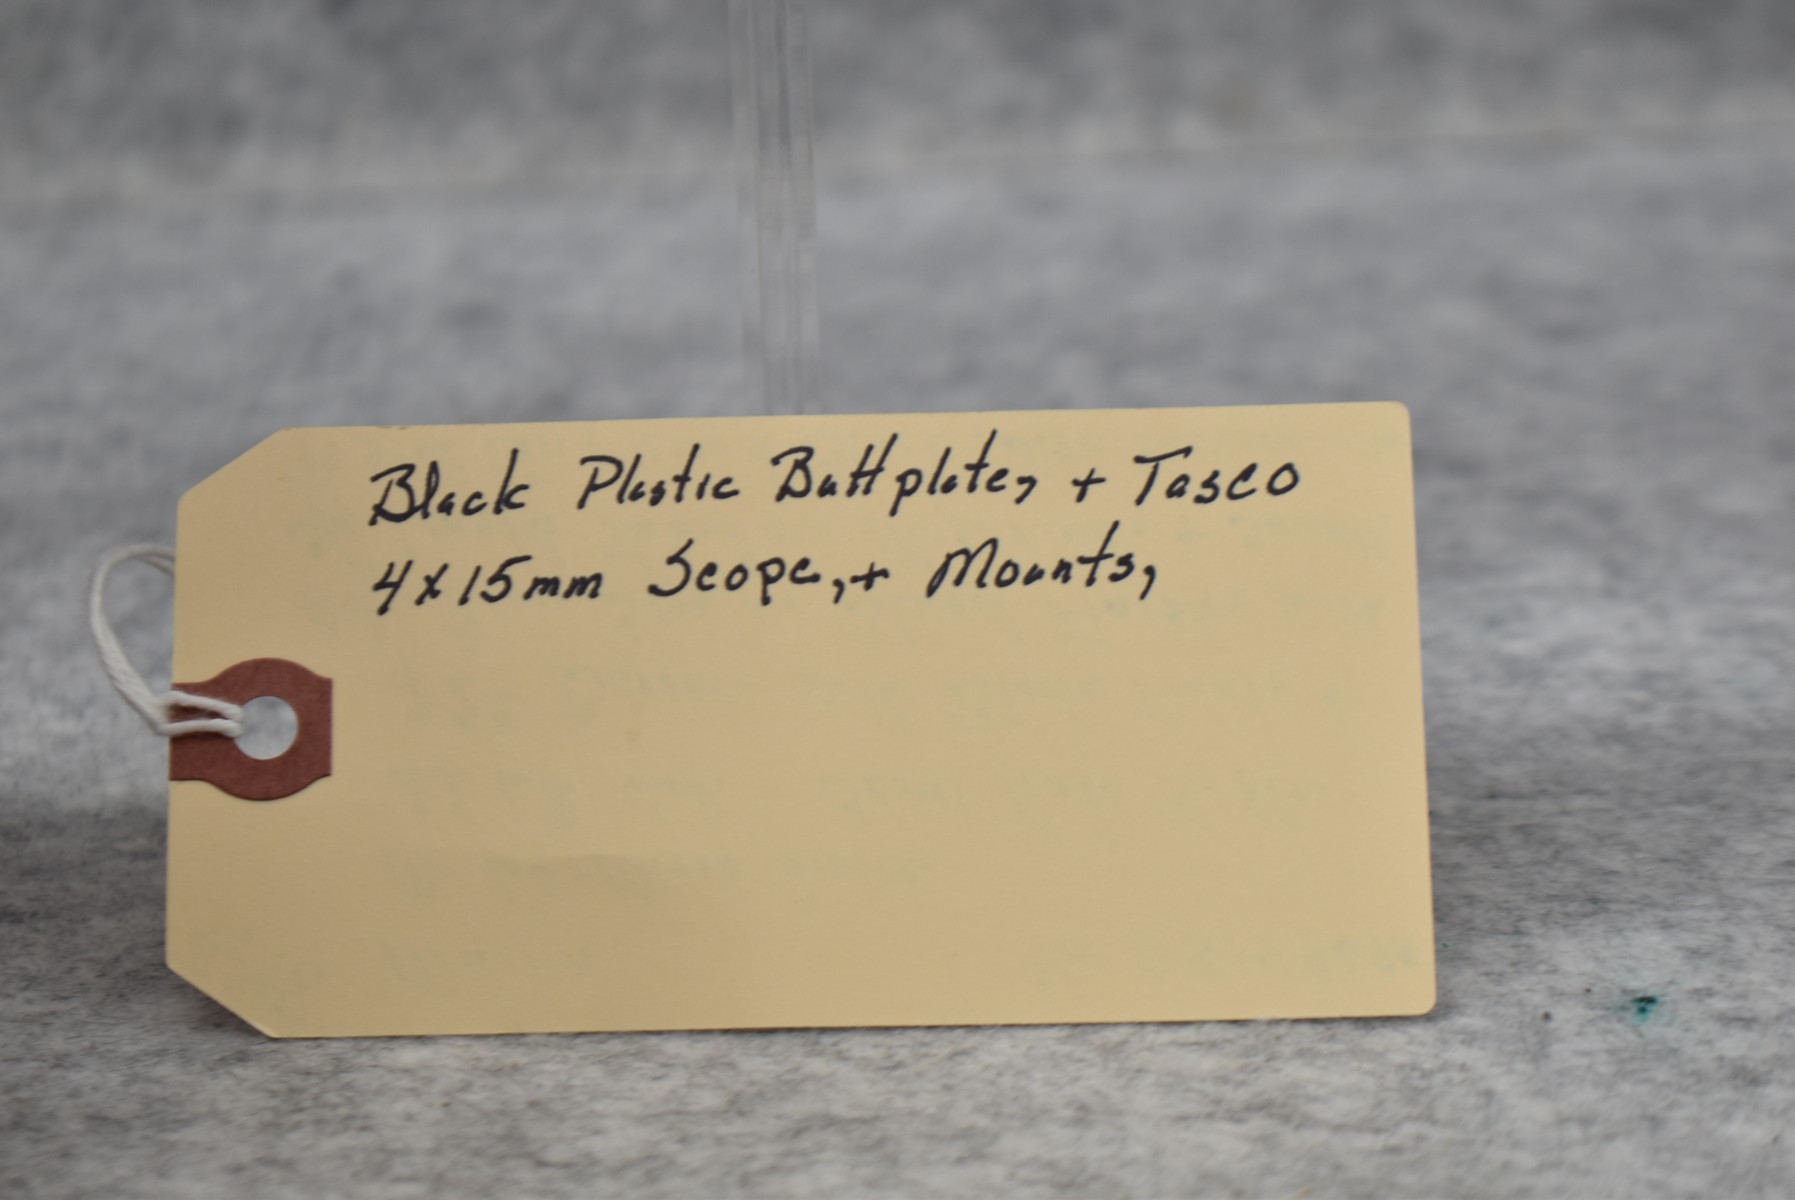 Black Plastic Buttplate, + Tasco
4x15mm Scope, + Mounts,